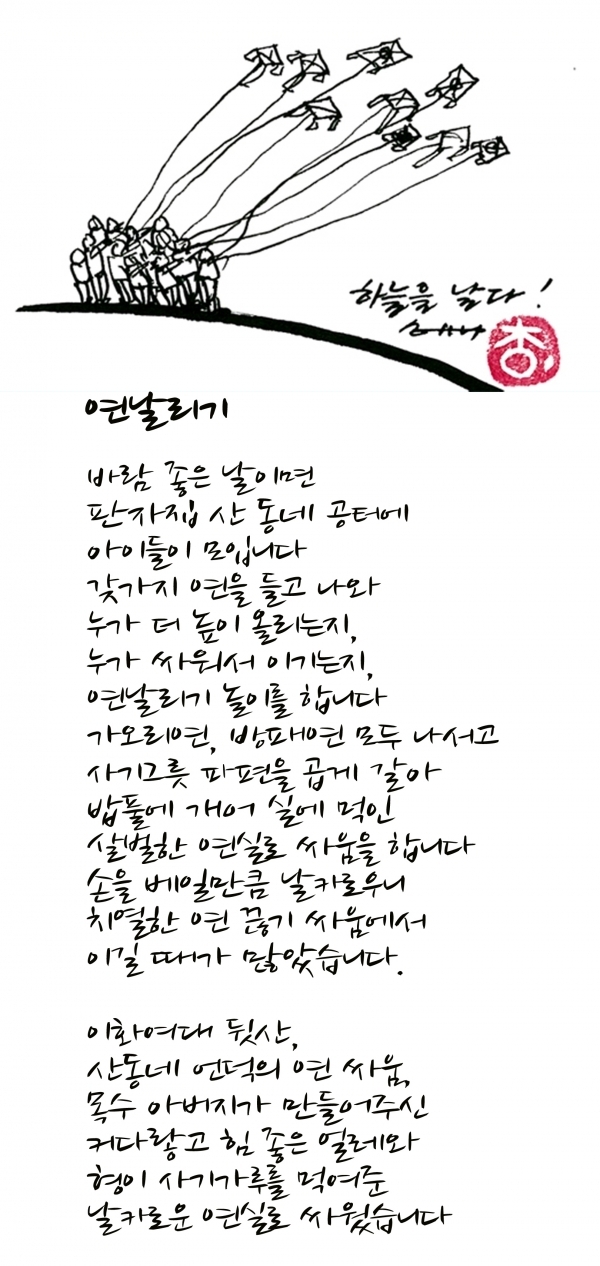 하늘을 날다!
연날리기
바람 좋은 날이면
판자집 산 동네 공터에
아이들이 모입니다
갖가지 연을 들고 나와
누가 더 높이 올리는지,
누가 싸워서 이기는지,
연날리기 놀이를 합니다
가오리연, 방패연 모두 나서고
사기그릇 파편을 곱게 갈아
밥풀에 개어 실에 먹인
살벌한 연실로 싸움을 합니다
손을 베일만큼 날카로우니
치열한 연 끊기 싸움에서
이길 때가 많았습니다.
이화여대 뒷산,
산동네 언덕의 연 싸움,
목수 아버지가 만들어주신
커다랗고 힘 좋은 얼레와
형이 사기가루를 먹여준
날카로운 연실로 싸웠습니다